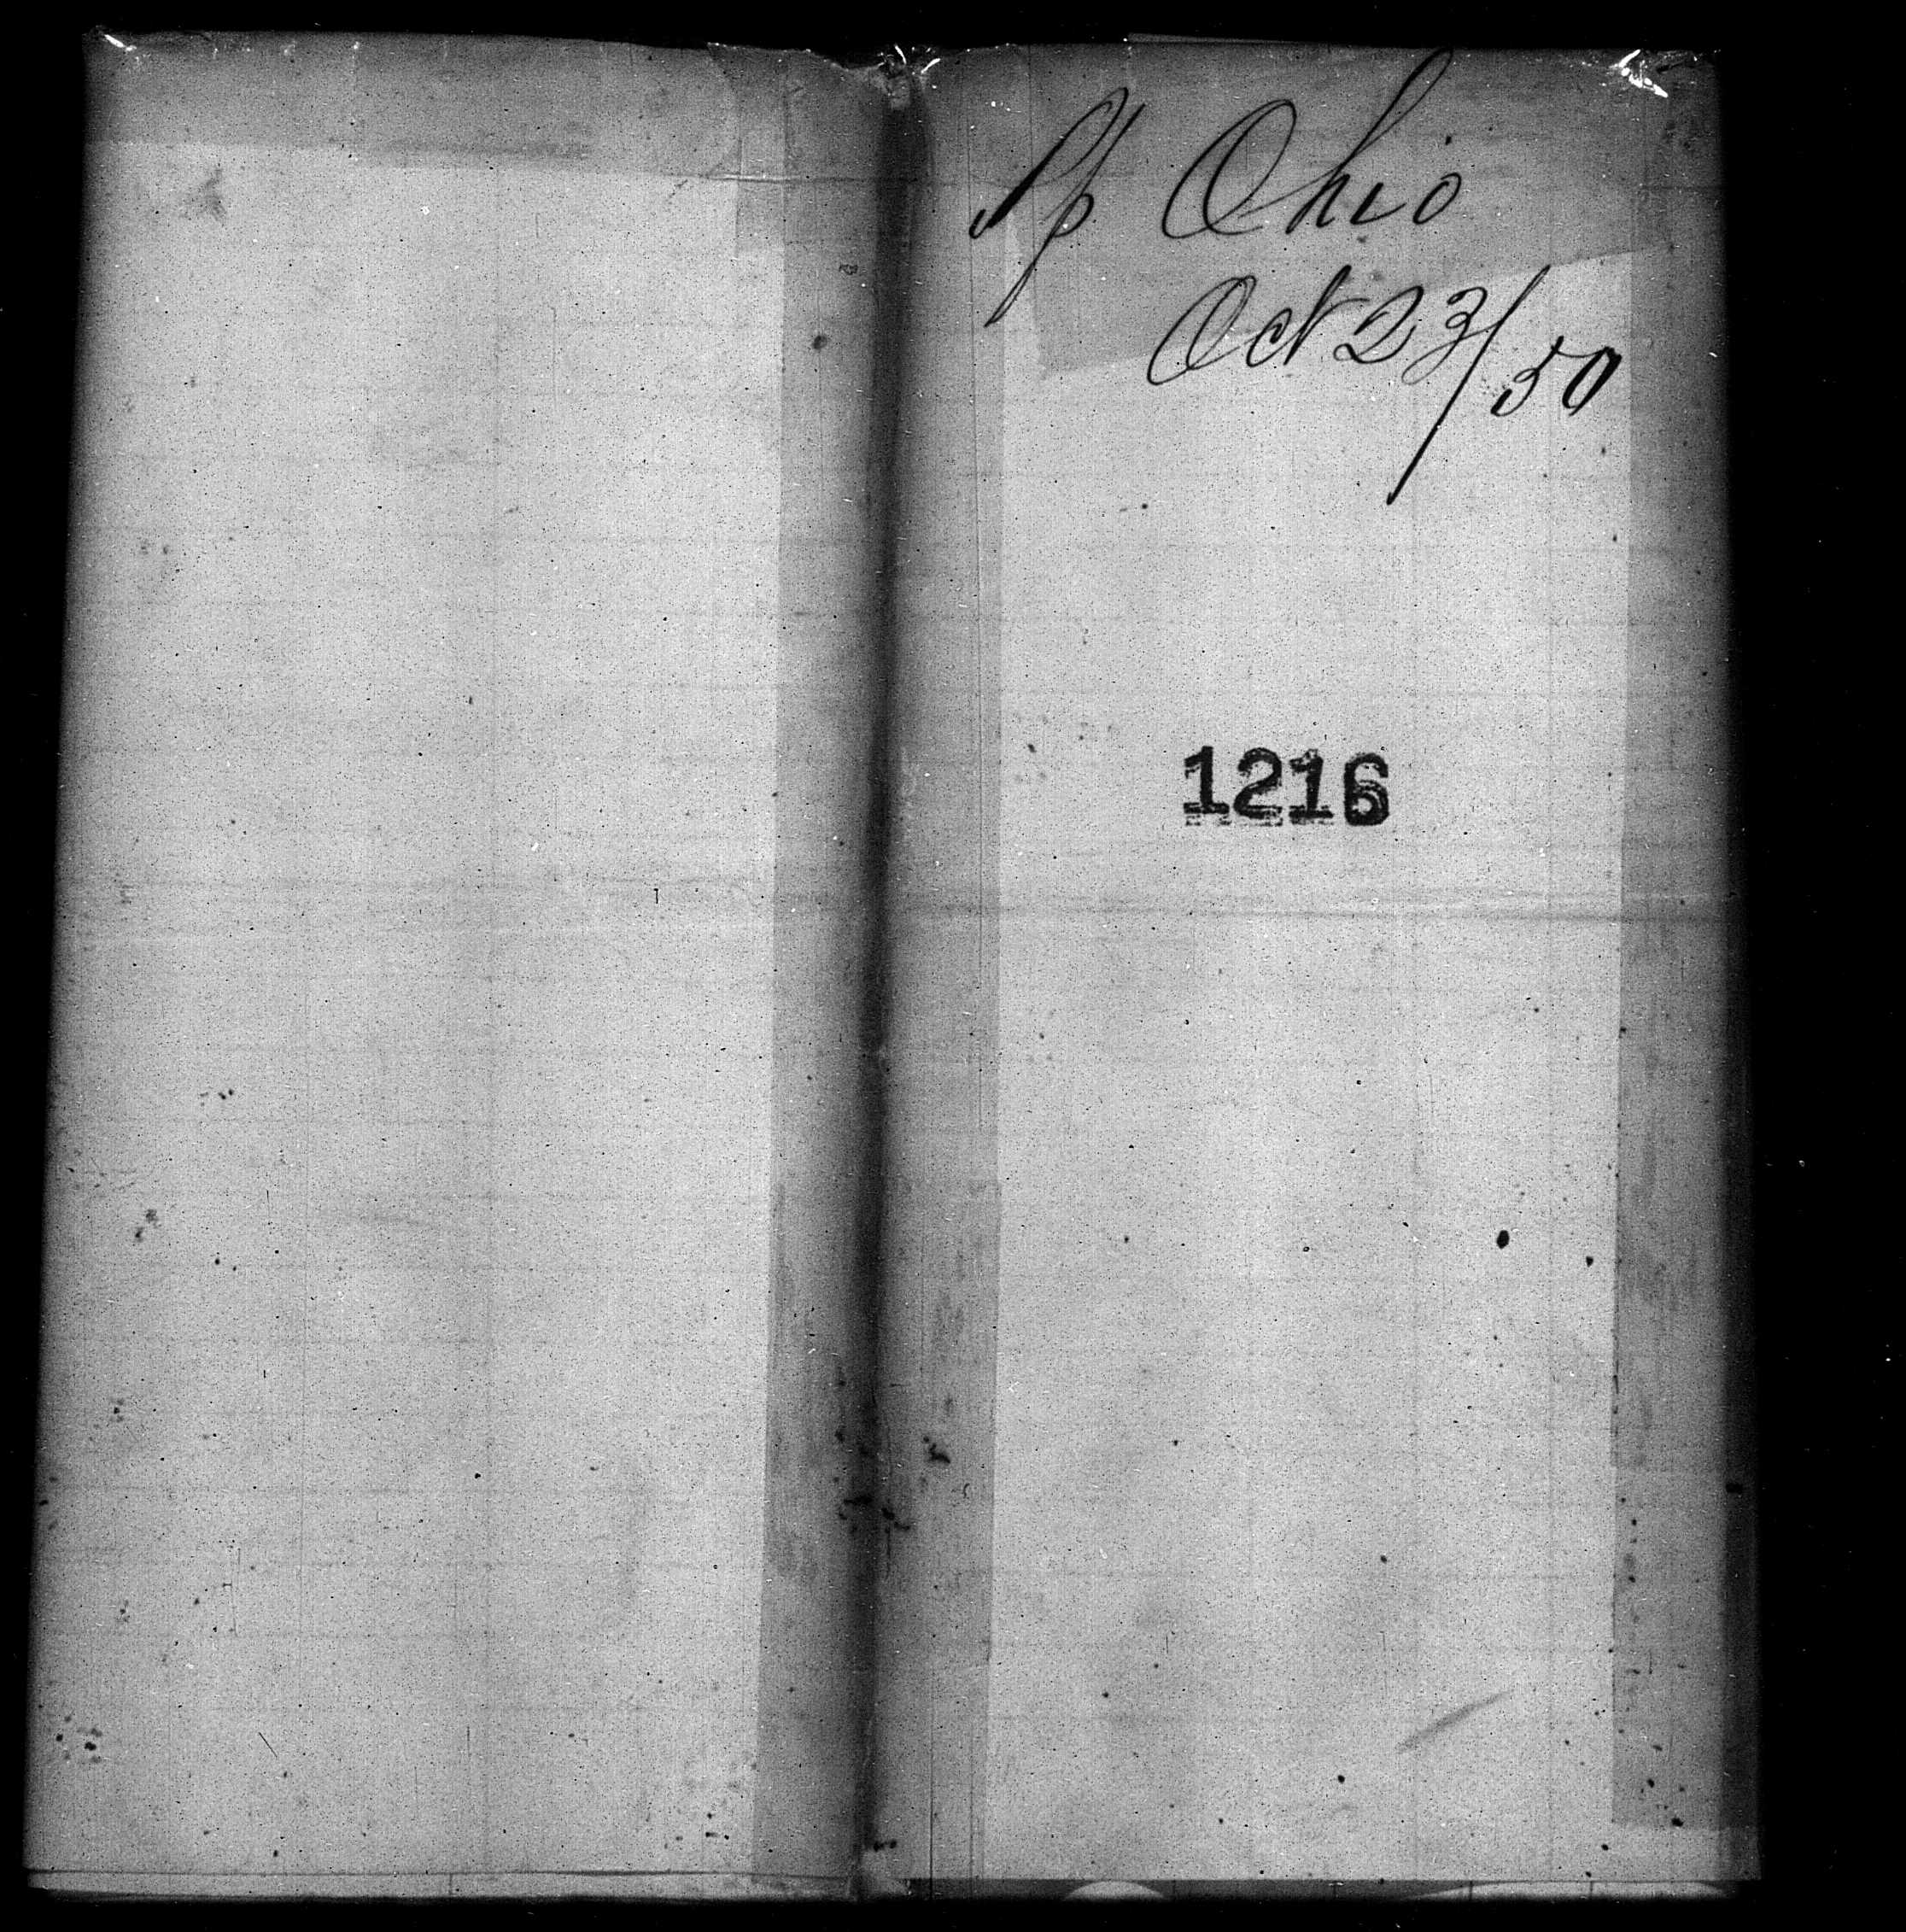 Sp Ohio
Oct 23/50
1216